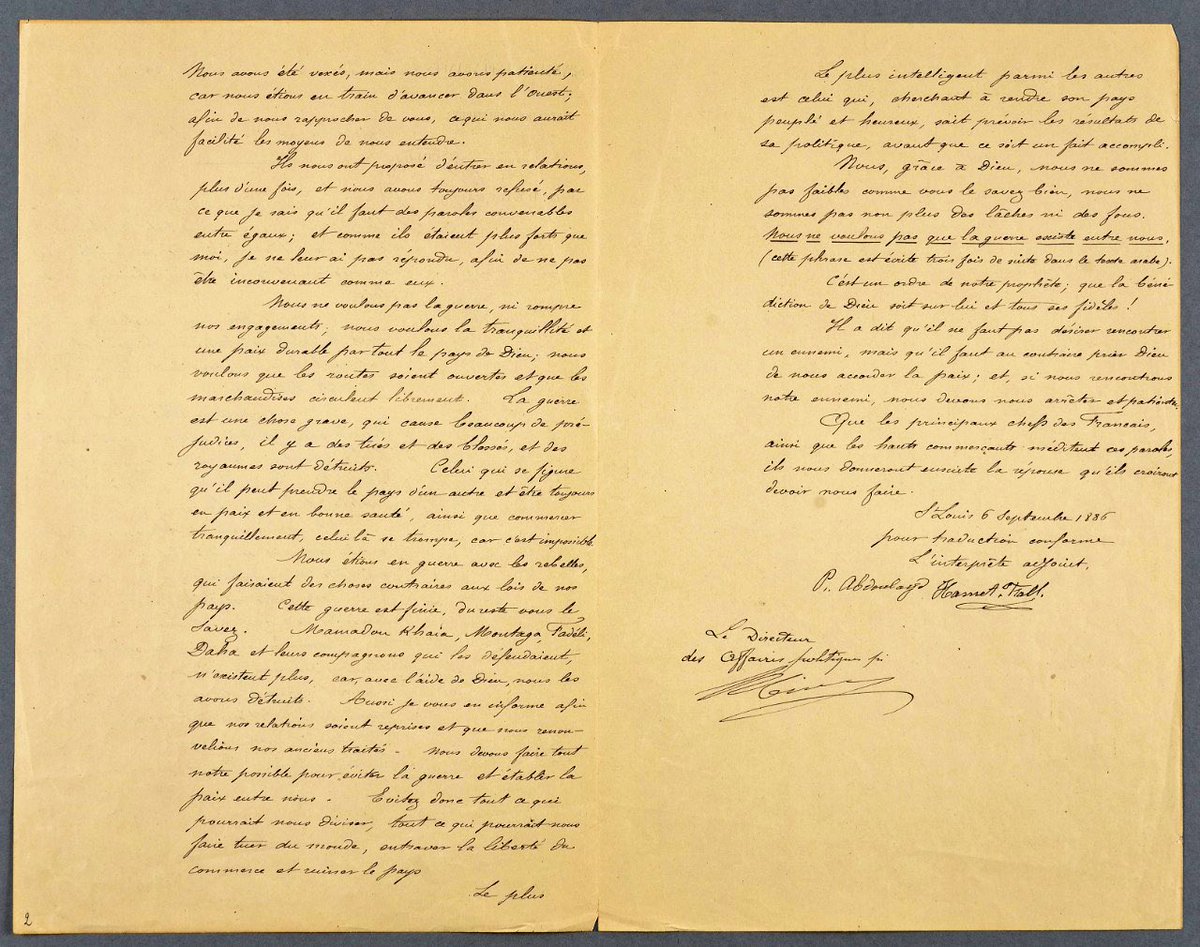 2
Nous avons été vexés, mais nous avons patienté,
car nous étions en train d'avancer dans l'Ouest;
afin de nous rapprocher de vous, ce qui nous aurait
facilité les moyens de nous entendre.
Ils nous ont proposé d'entrer en relations,
plus d'une fois, et nous avons toujours refusé, par
ce que je sais qu'il faut des paroles convenables
entre égaux; et comme ils étaient plus forts que
moi, je ne leur ai pas répondu, afin de ne pas
être inconvenant comme eux.
Nous ne voulons pas la guerre, ni rompre
nos engagements; nous voulons la tranquillité et
une paix durable par tout le pays de Dieu; nous
voulons que les routes soient ouvertes et que les
marchandises circulent librement. La guerre
est une chose grave, qui cause beaucoup de pré-
judices, il y a des tués et des blessés, et des
royaumes sont détruits. Celui qui se figure
qu'il peut prendre le pays d'un autre et être toujours
en paix et en bonne santé, ainsi que commercer
tranquillement, celui là se trompe, car c'est impossible.
Nous étions en guerre avec les rebelles,
qui faisaient des choses contraires aux lois de nos
pays. Cette guerre est finie, du reste vous le
savez. Mamadou Khaia, Montaga, Fadéli,
Daha et leurs compagnons qui les défendaient,
n'existent plus, car, avec l'aide de Dieu, nous les
avons détruits. Aussi je vous en informe afin
que nos relations soient reprises et que nous renou-
velions nos anciens traités - Nous devons faire tout
notre possible pour éviter la guerre et établir la
paix entre nous. Evitez donc tout ce qui
pourrait nous diviser, tout ce qui pourrait nous
faire tuer du monde, entraver la liberté du
commerce et ruiner le pays
Le plus
Le plus intelligent parmi les autres
est celui qui, cherchant à rendre son pays
peuplé et heureux, sait prévoir les résultats de
sa politique, avant que ce soit un fait accompli.
Nous, grâce à Dieu, nous ne sommes
pas faibles comme vous le savez bien, nous ne
sommes pas non plus des lâches ni des fous.
Nous ne voulons pas que la guerre existe entre nous.
(cette phrase est évite trois fois de suite dans le texte arabe).
C'est un ordre de notre prophète; que la béné-
diction de Dieu soit sur lui et tous ses fidèles!
Il a dit qu'il ne faut pas désirer rencontrer
un ennemi, mais qu'il faut au contraire prier Dieu
de nous accorder la paix; et, si nous rencontrons
notre ennemi, nous devons nous arrêter et patienter.
Que les principaux chefs des Francais,
ainsi que les hauts commerçants méditent ces paroles,
ils nous donneront ensuite la réponse qu'ils croiront
devoir nous faire.
St Louis 6 Septembre 1886
pour traduction conforme
L'interprète adjoint,
P. Abdoulaye Hamet. Fall.
Le Directeur
des Affaires politiques pi